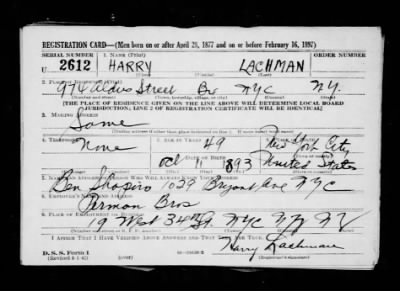 REGISTRATION CARD—(Men born on or after April 28, 1877 and on or before February 16, 1897)
SERIAL NUMBER 1. NAME (Print) ORDER NUMBER
U 2612 HARRY LACHMAN
(First) (Middle) (Last)
2. PLACE OF RESIDENCE (Print)
974 Aldus Street Bx NYC NY.
(Number and street) (Town, township, village, or city) (County) (State)
[THE PLACE OF RESIDENCE GIVEN ON THE LINE ABOVE WILL DETERMINE LOCAL BOARD
JURISDICTION; LINE 2 OF REGISTRATION CERTIFICATE WILL BE IDENTICAL]
3. MAILING ADDRESS
Same
4. TELEPHONE 5. AGE IN YEARS 6. PLACE OF BIRTH
None 49 New York City
DATE OF BIRTH
Oct 11 1893 United States
7. NAME AND ADDRESS OF PERSON WHO WILL ALWAYS KNOW YOUR ADDRESS
Ben Shapiro 1029 Bryant Ave NYC
8. EMPLOYER'S NAME AND ADDRESS
Perman Bros
9. PLACE OF EMPLOYMENT OR BUSINESS
19 West 34th St. NYC NY NY
I AFFIRM THAT I HAVE VERIFIED ABOVE ANSWERS AND THAT THEY ARE TRUE.
Harry Lachman
D. S. S. Form 1
(Registrant's signature)